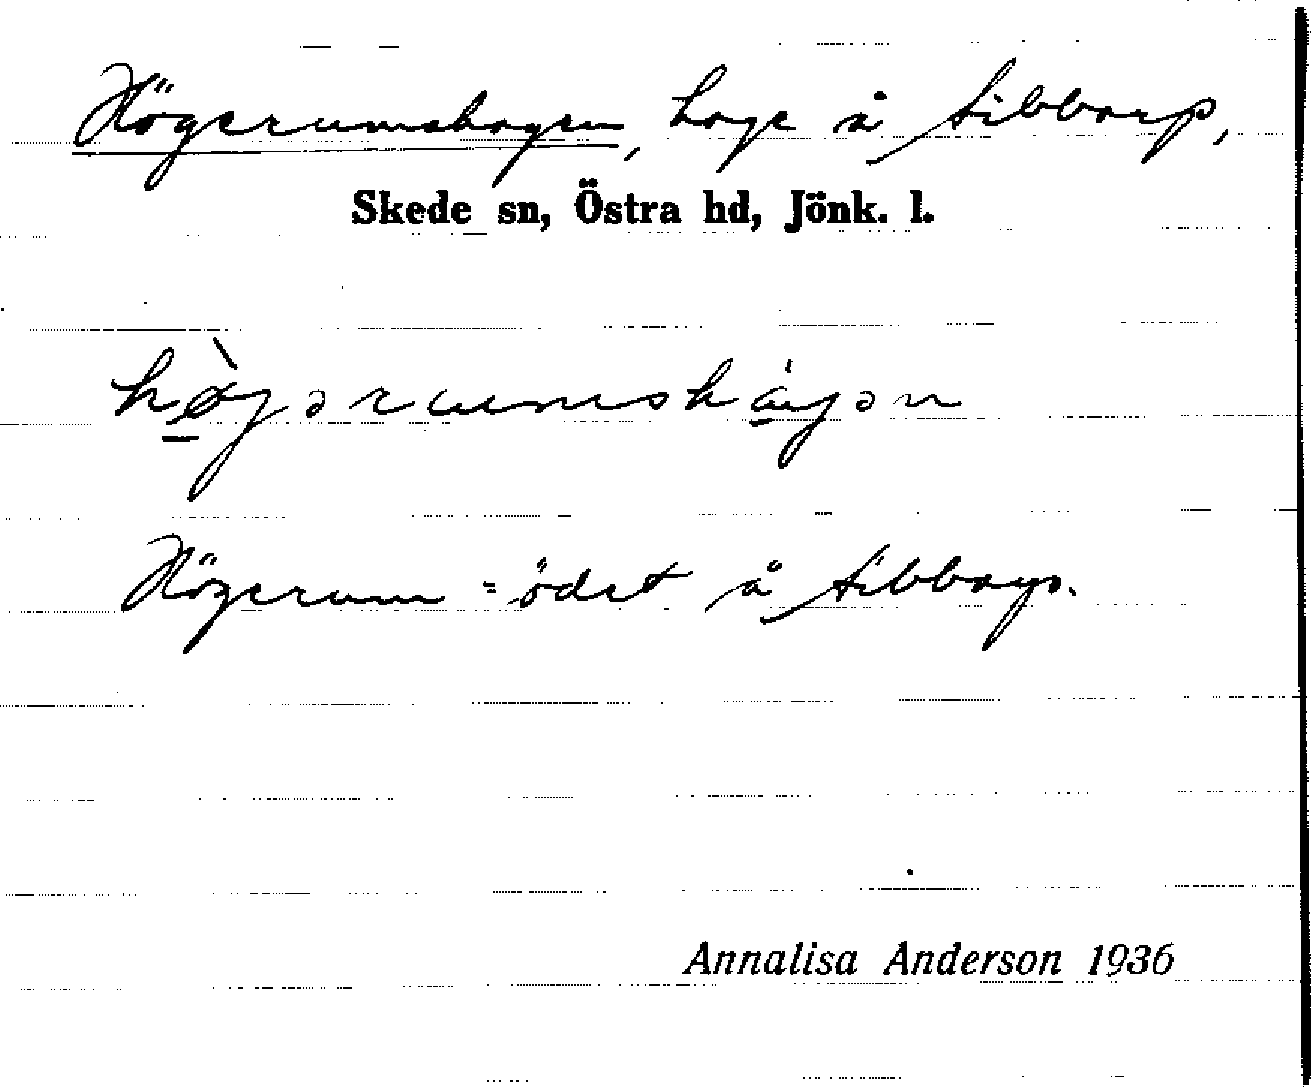 Högerumshagen, hage å Sibbarp,
Skede sn, Östra hd, Jönk. l.
Högerum = ödet å Sibbarp.
Annalisa Anderson 1936